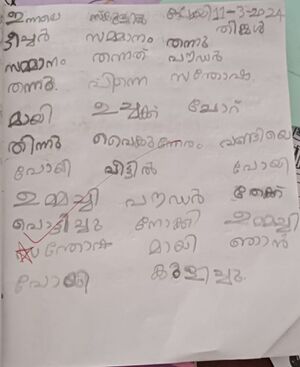 ഇന്നലെ സ്കൂളിൽ പോയി 11-3-2024
തിങ്കൾ
ടീച്ചർ സമ്മാനം തന്നു
സമ്മാനം തന്നത് പൗഡർ
തന്നു. പിന്നെ സന്തോഷ
മായി ഉച്ചക്ക് ചോറ്
തിന്നു വൈകുന്നേരം വണ്ടിയിലെ
പോയി വീട്ടിൽ പോയി
ഉമ്മച്ചി പൗഡർ തേക്ക്
പൊട്ടിച്ചു നോക്കി ഉമ്മച്ചി
സന്തോഷ മായി ഞാൻ
പോയി കുളിച്ചു.